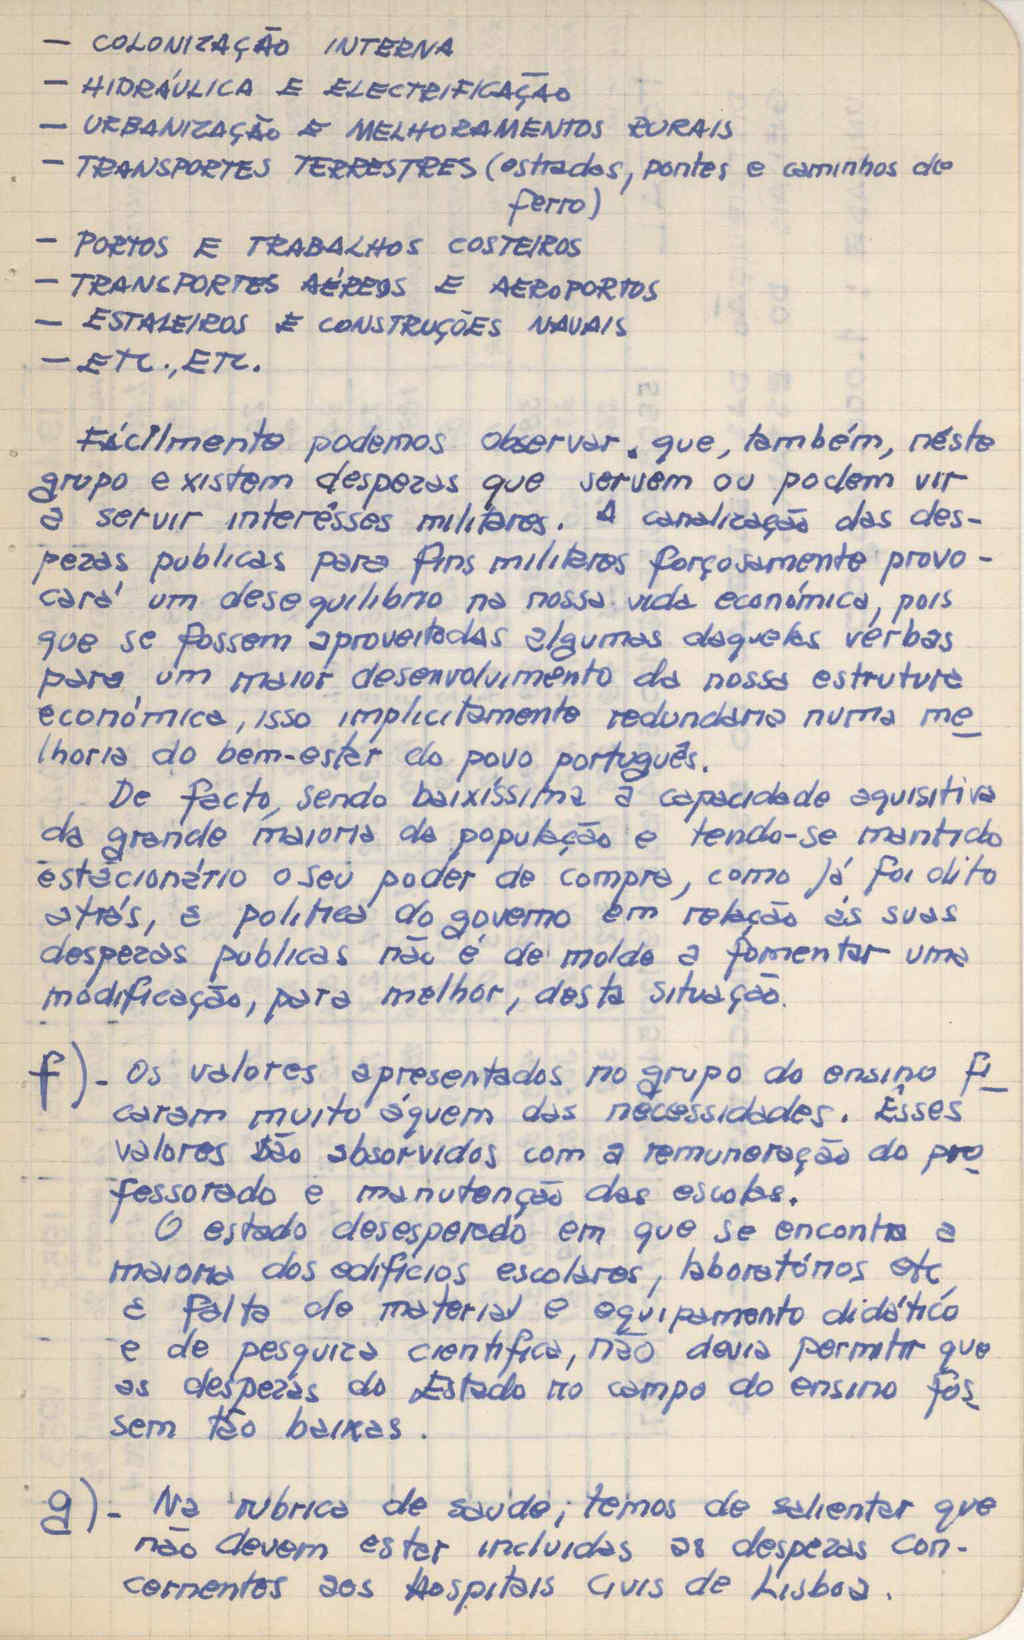 - COLONIZAÇÃO INTERNA
- HIDRÁULICA E ELECTRIFICAÇÃO
- URBANIZAÇÃO E MELHORAMENTOS RURAIS
- TRANSPORTES TERRESTRES (estradas, pontes e caminhos de
ferro)
- PORTOS E TRABALHOS COSTEIROS
- TRANSPORTES AÉREOS E AEROPORTOS
- ESTALEIROS E CONSTRUÇÕES NAVAIS
- ETC., ETC.
Fácilmente podemos observar, que, também, néste
grupo existem despezas que servem ou podem vir
a servir interésses militares. A canalização das des-
pezas publicas para fins militares forçosamente provo-
cará um desequilibrio na nossa vida económica, pois
que se fossem aproveitadas algumas daquelas vérbas
para um maior desenvolvimento da nossa estrutura
económica, isso implicitamente redundaria numa me
lhoria do bem-estar do povo português.
De facto, sendo baixíssima a capacidade aquisitiva
da grande maioria da população e tendo-se mantido
estácionário o seu poder de compra, como já foi dito
atrás, a politica do governo em relação ás suas
despezas publicas não é de molde a fomentar uma
modificação, para melhor, desta situação.
f) - Os valores apresentados no grupo do ensino fi
caram muito áquem das necessidades. Êsses
valores são absorvidos com a remuneração do pro
fessorado e manutenção das escolas.
O estado desesperado em que se encontra a
maioria dos edificios escolares, laboratórios etc
a falta de material e equipamento didático
e de pesquiza cientifica, não devia permitir que
as despezas do Estado no campo do ensino fos
sem tão baixas.
g) - Na rubrica de saude, temos de salientar que
não devem estar incluidas as despezas con-
cernentes aos Hospitais Civis de Lisboa.